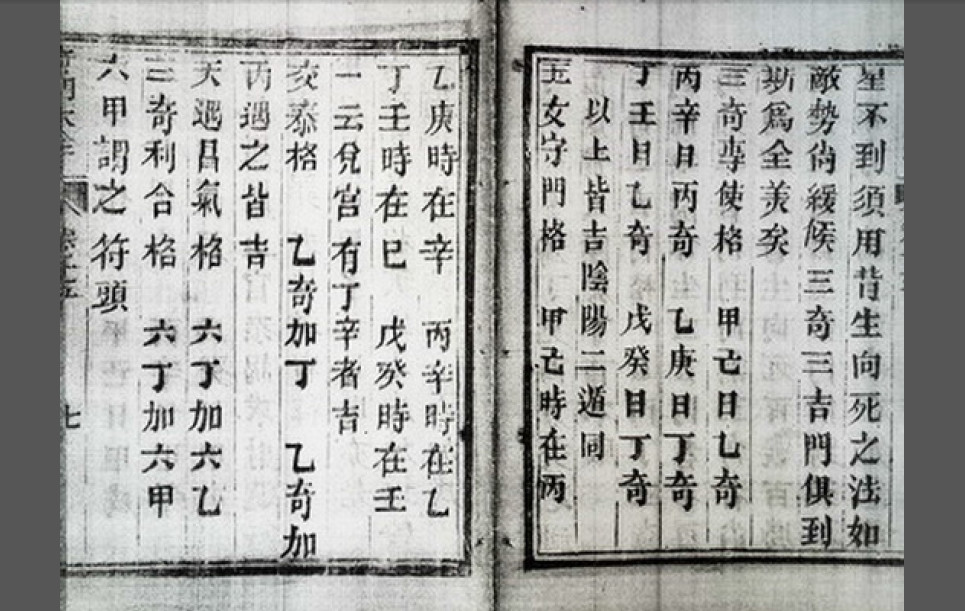 星不到須用背生向死之法如
敵勢尚緩候三奇三吉門俱到
斯爲全美矣
三奇専使格 甲己日乙奇
丙辛日丙奇 乙庚日丁奇
丁壬日乙奇 戊癸日丁奇
以上皆吉陰陽二遁同
玉女守門格 甲己時在丙
乙庚時在辛 丙辛時在乙
丁壬時在巳 戊癸時在壬
一云兌宮有丁辛者吉
交泰格 乙奇加丁 乙奇加
丙遇之皆吉
天遇昌氣格 六丁加六乙
三奇利合格 六丁加六甲
六甲謂之符頭
七